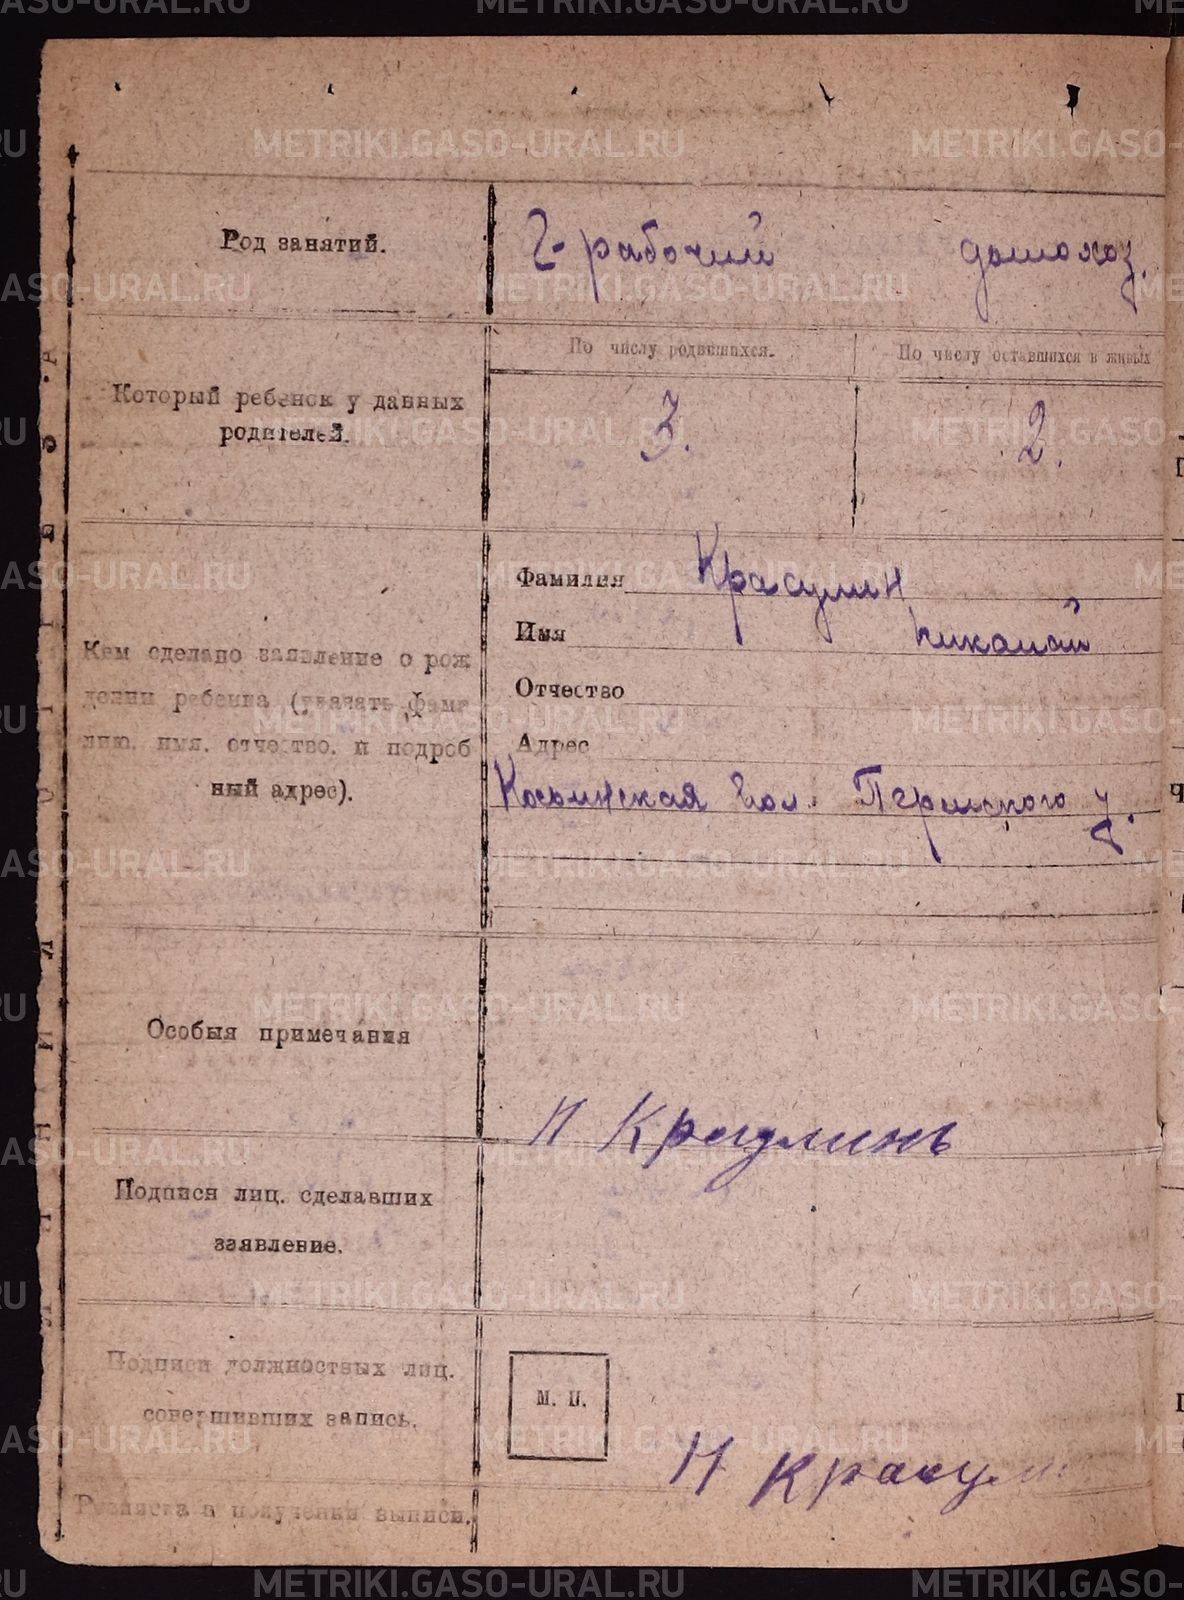 METRIKI.GASO-URAL.RU
Род занятий.
Ч-рабочий домохоз.
По числу родившихся.
По числу оставшихся в живых
Который ребенок у данных
родителей.
3.
2.
Фамилия Красулин
Имя Николай
Отчество
Адрес
Косьинская вол. Пермского у.
Кем сделано заявление о рож
дении ребенка (указать фами
лию. имя. отчество. и подроб
ный адрес).
Особыя примечания
Н Красулинъ
Подписи лиц. сделавших
заявление.
Подписи должностных лиц.
совершивших запись.
М. П.
Н Красули
Росписка в получении выписи.